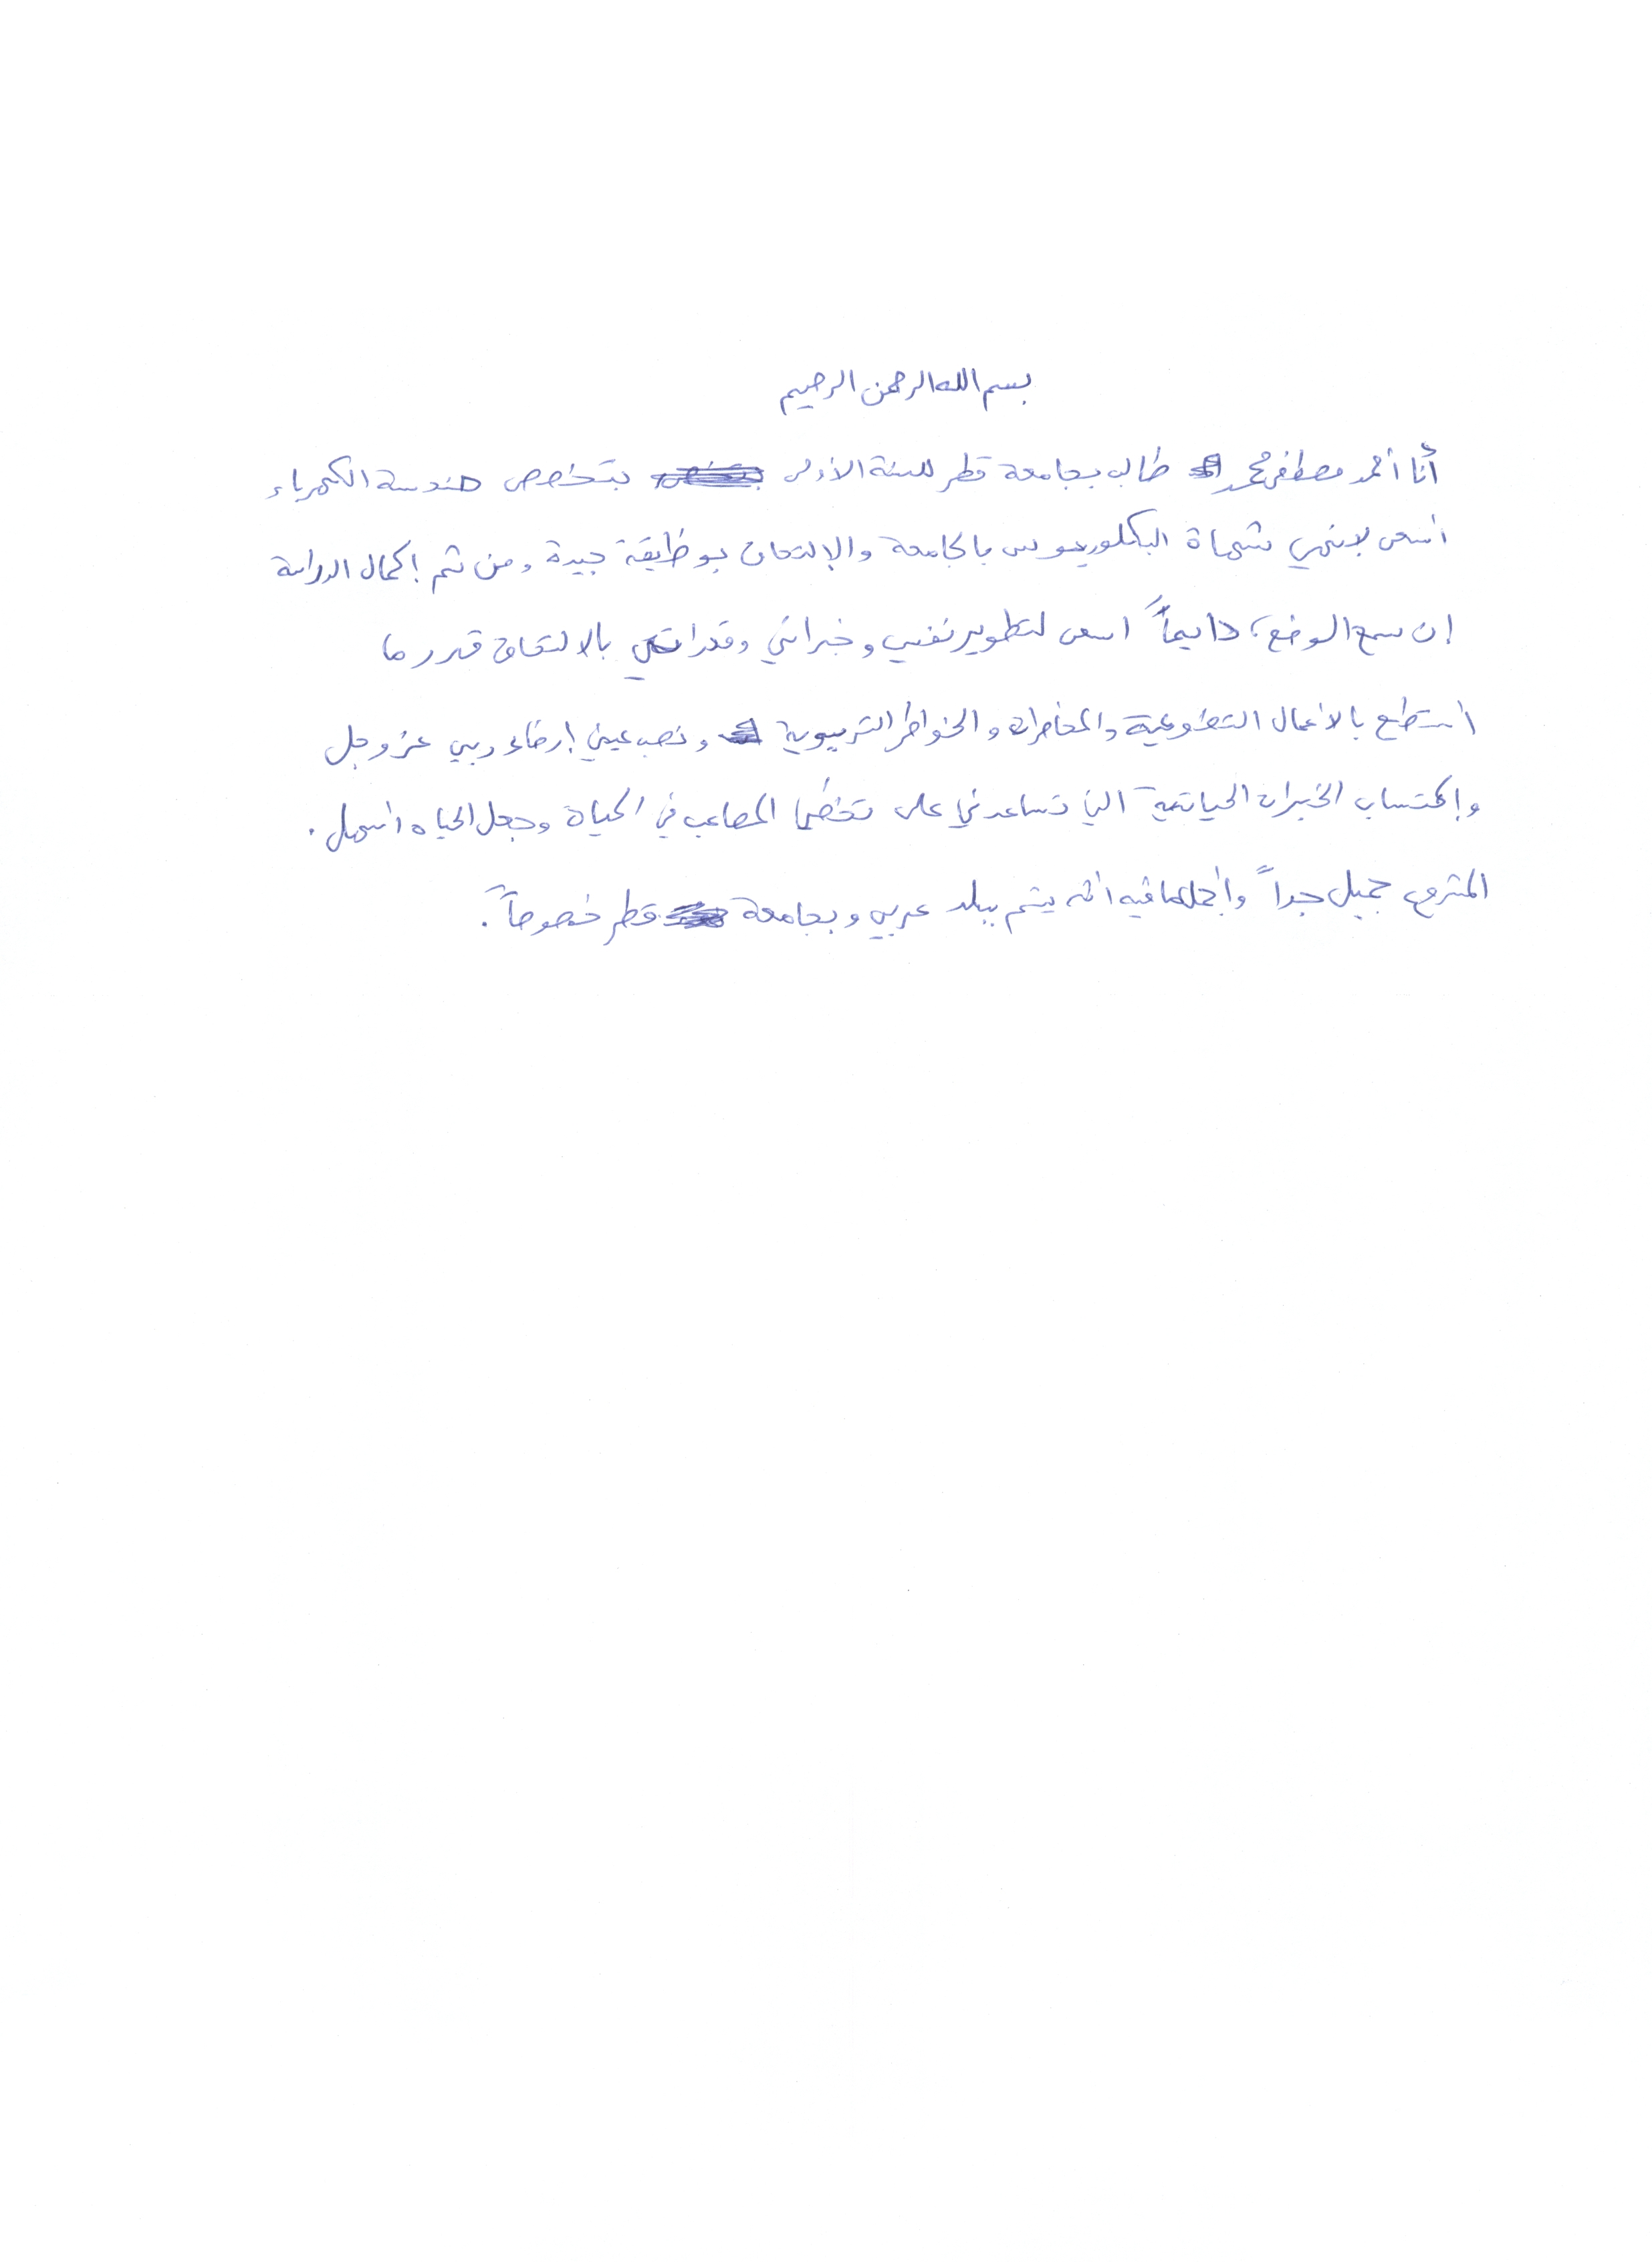 بسم الله الرحمن الرحيم
أنا أحمد مصطفى محمد طالب بجامعة قطر للسنة الأولى بتخصص هندسة الكهرباء
أسعى لإنهي شهاة البكلوريوس بالجامعة والإلتحاق بوظايقة جيدة ومن ثم إكمال الدراسة
إن سمح الوضع، دايماً اسعى لتطوير نفسي وخبراتي وقدراتي بالالتحاق قدر ما
أستطع بالأعمال التطوعية والمخاطرات والخواطر التربيوية ونصب عيني إرضاء ربي عز وجل
وإكتساب الخبرات الحياتية التي تساعدني على تخطي المصاعب في الحياة وجعل الحياه أسهل.
المشروع جميل جداً وأجمل ما فيه أنه يتم ببلد عربي وبجامعة قطر خصوصاً.